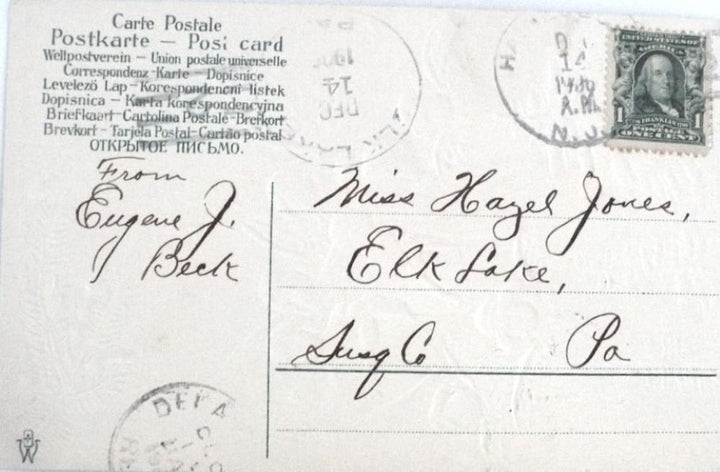 Carte Postale
Postkarte — Post card
Weltpostverein — Union postale universelle
Correspondenz-Karte — Dopisnice
Levelező Lap — Korespondencni listek
Dopisnica — Karta korespondencyjna
Briefkaart — Cartolina Postale — Brefkort
Brevkort — Tarjela Postal — Cartão postal
ОТКРЫТОЕ ПИСЬМО.
ELK LAKE
PA
DEC
14
N.J.
A.M.
ONE CENT
1
1
From
Eugene J.
Beck
Miss Hazel Jones,
Elk Lake,
Susq Co Pa